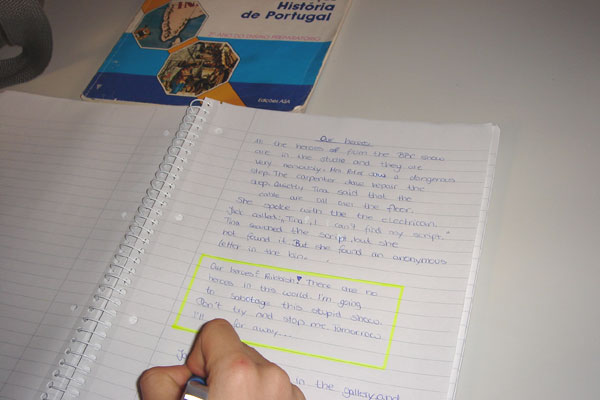 História
de Portugal
2º ANO DO ENSINO PREPARATÓRIO
Edições ASA
Our heroes
At the heroes of Even the BBC show
are in the studio and they are
very nervously. Mrs Peter and a dangerous
step. The carpenter have repair the
step. Quickly Tina said that the
cable are all over the floor.
She spoke with the the electrician.
Jack called "Tina, I can't find my script."
Tina searched the script, but she
not found it. But she found an anonymous
letter in the bin.
Our heroes? Rubbish! There are no
heroes in this world. I'm going
to sabotage this stupid show.
Don't try and stop me. Tomorrow
I'll far away...
in the gallery, and